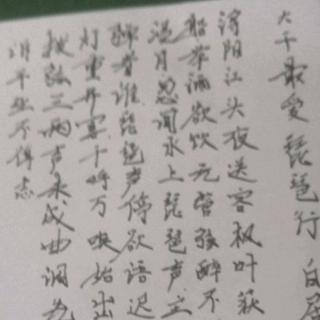 大千最爱琵琶行 白居
浔阳江头夜送客 枫叶荻
船 举酒欲饮无管弦 醉不
浸月 忽闻水上琵琶声 主
弹者谁 琵琶声停欲语迟
灯重开宴 千呼万唤始出
拨弦三两声 未成曲调先
诉平生不得志